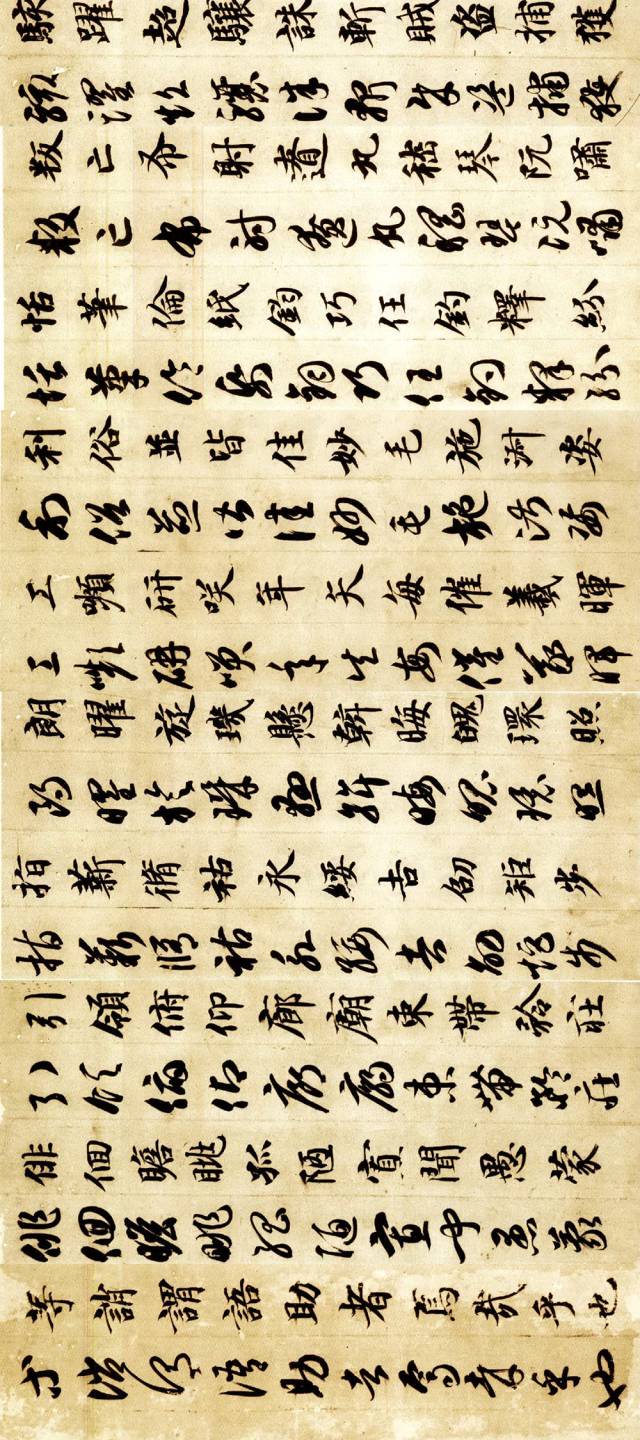 駭躍超驤誅斬賊盜捕獲
駭躍超驤誅斬賊盜捕獲
叛亡布射遼丸嵇琴阮嘯
叛亡布射遼丸嵇琴阮嘯
恬筆倫紙鈞巧任釣釋紛
恬筆倫紙鈞巧任釣釋紛
利俗並皆佳妙毛施淑姿
利俗並皆佳妙毛施淑姿
工嚬研咲年矢每催羲暉
工嚬研咲年矢每催羲暉
朗曜旋璣懸斡晦魄環照
朗曜旋璣懸斡晦魄環照
指薪脩祜永綏吉劭矩步
指薪脩祜永綏吉劭矩步
引領俯仰廊廟束帶矜莊
引領俯仰廊廟束帶矜莊
俳佪瞻眺孤陋寡聞愚蒙
俳佪瞻眺孤陋寡聞愚蒙
等誚謂語助者焉哉乎也
等誚謂語助者焉哉乎也